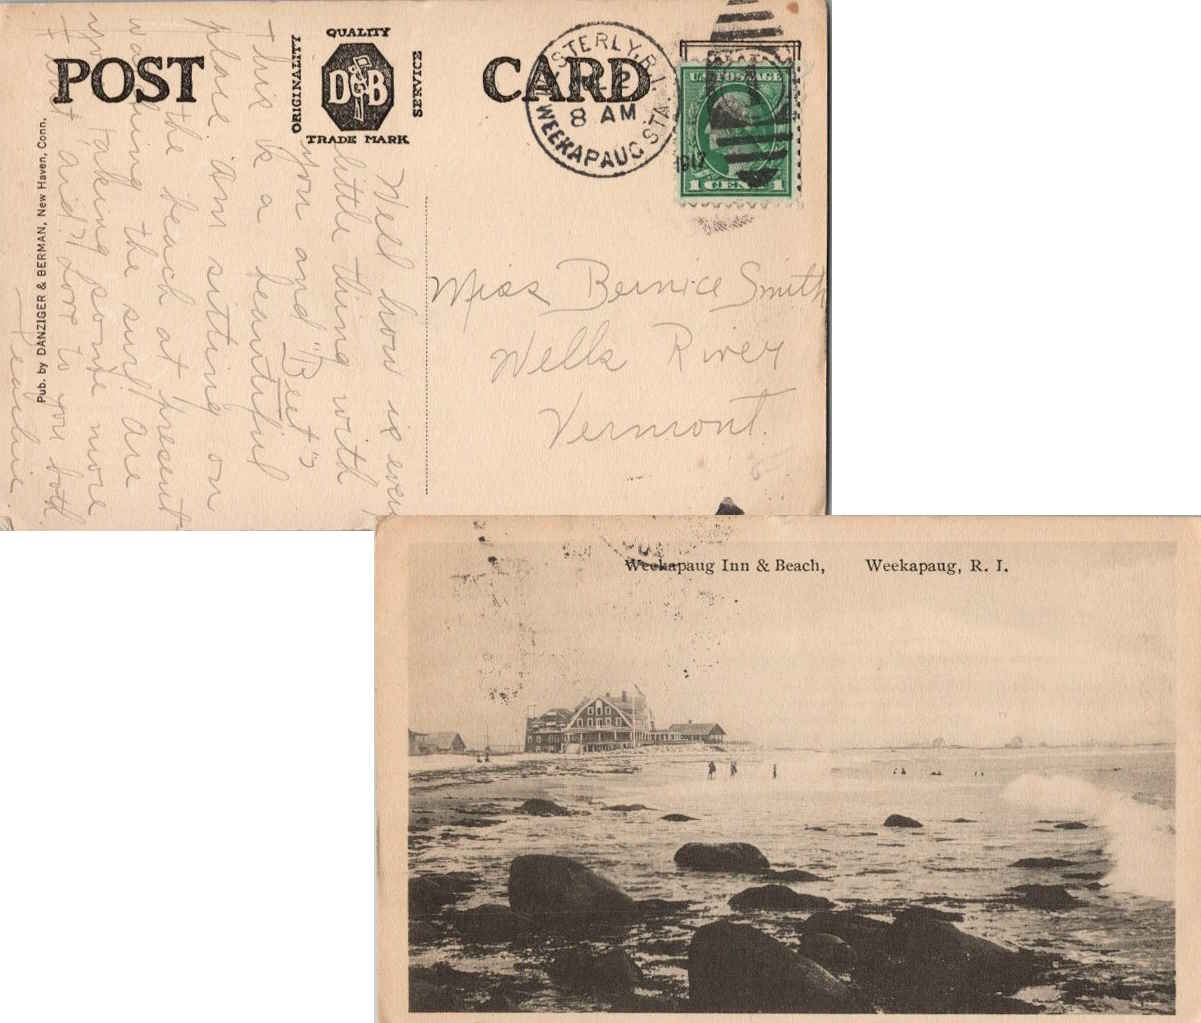 POST CARD
QUALITY
ORIGINALITY
D&B
SERVICE
TRADE MARK
WESTERLY, R.I.
8 AM
1917
WEEKAPAUG STA.
U.S. POSTAGE
1 CENT 1
Pub. by DANZIGER & BERMAN, New Haven, Conn.
Well how is every
little thing with
you and "Bee"?
This is a beautiful
place. Am sitting on
the beach at present
watching the surf. Are
you taking some more
Love to you both
Miss Bernice Smith
Wells River
Vermont.
Weekapaug Inn & Beach, Weekapaug, R. I.